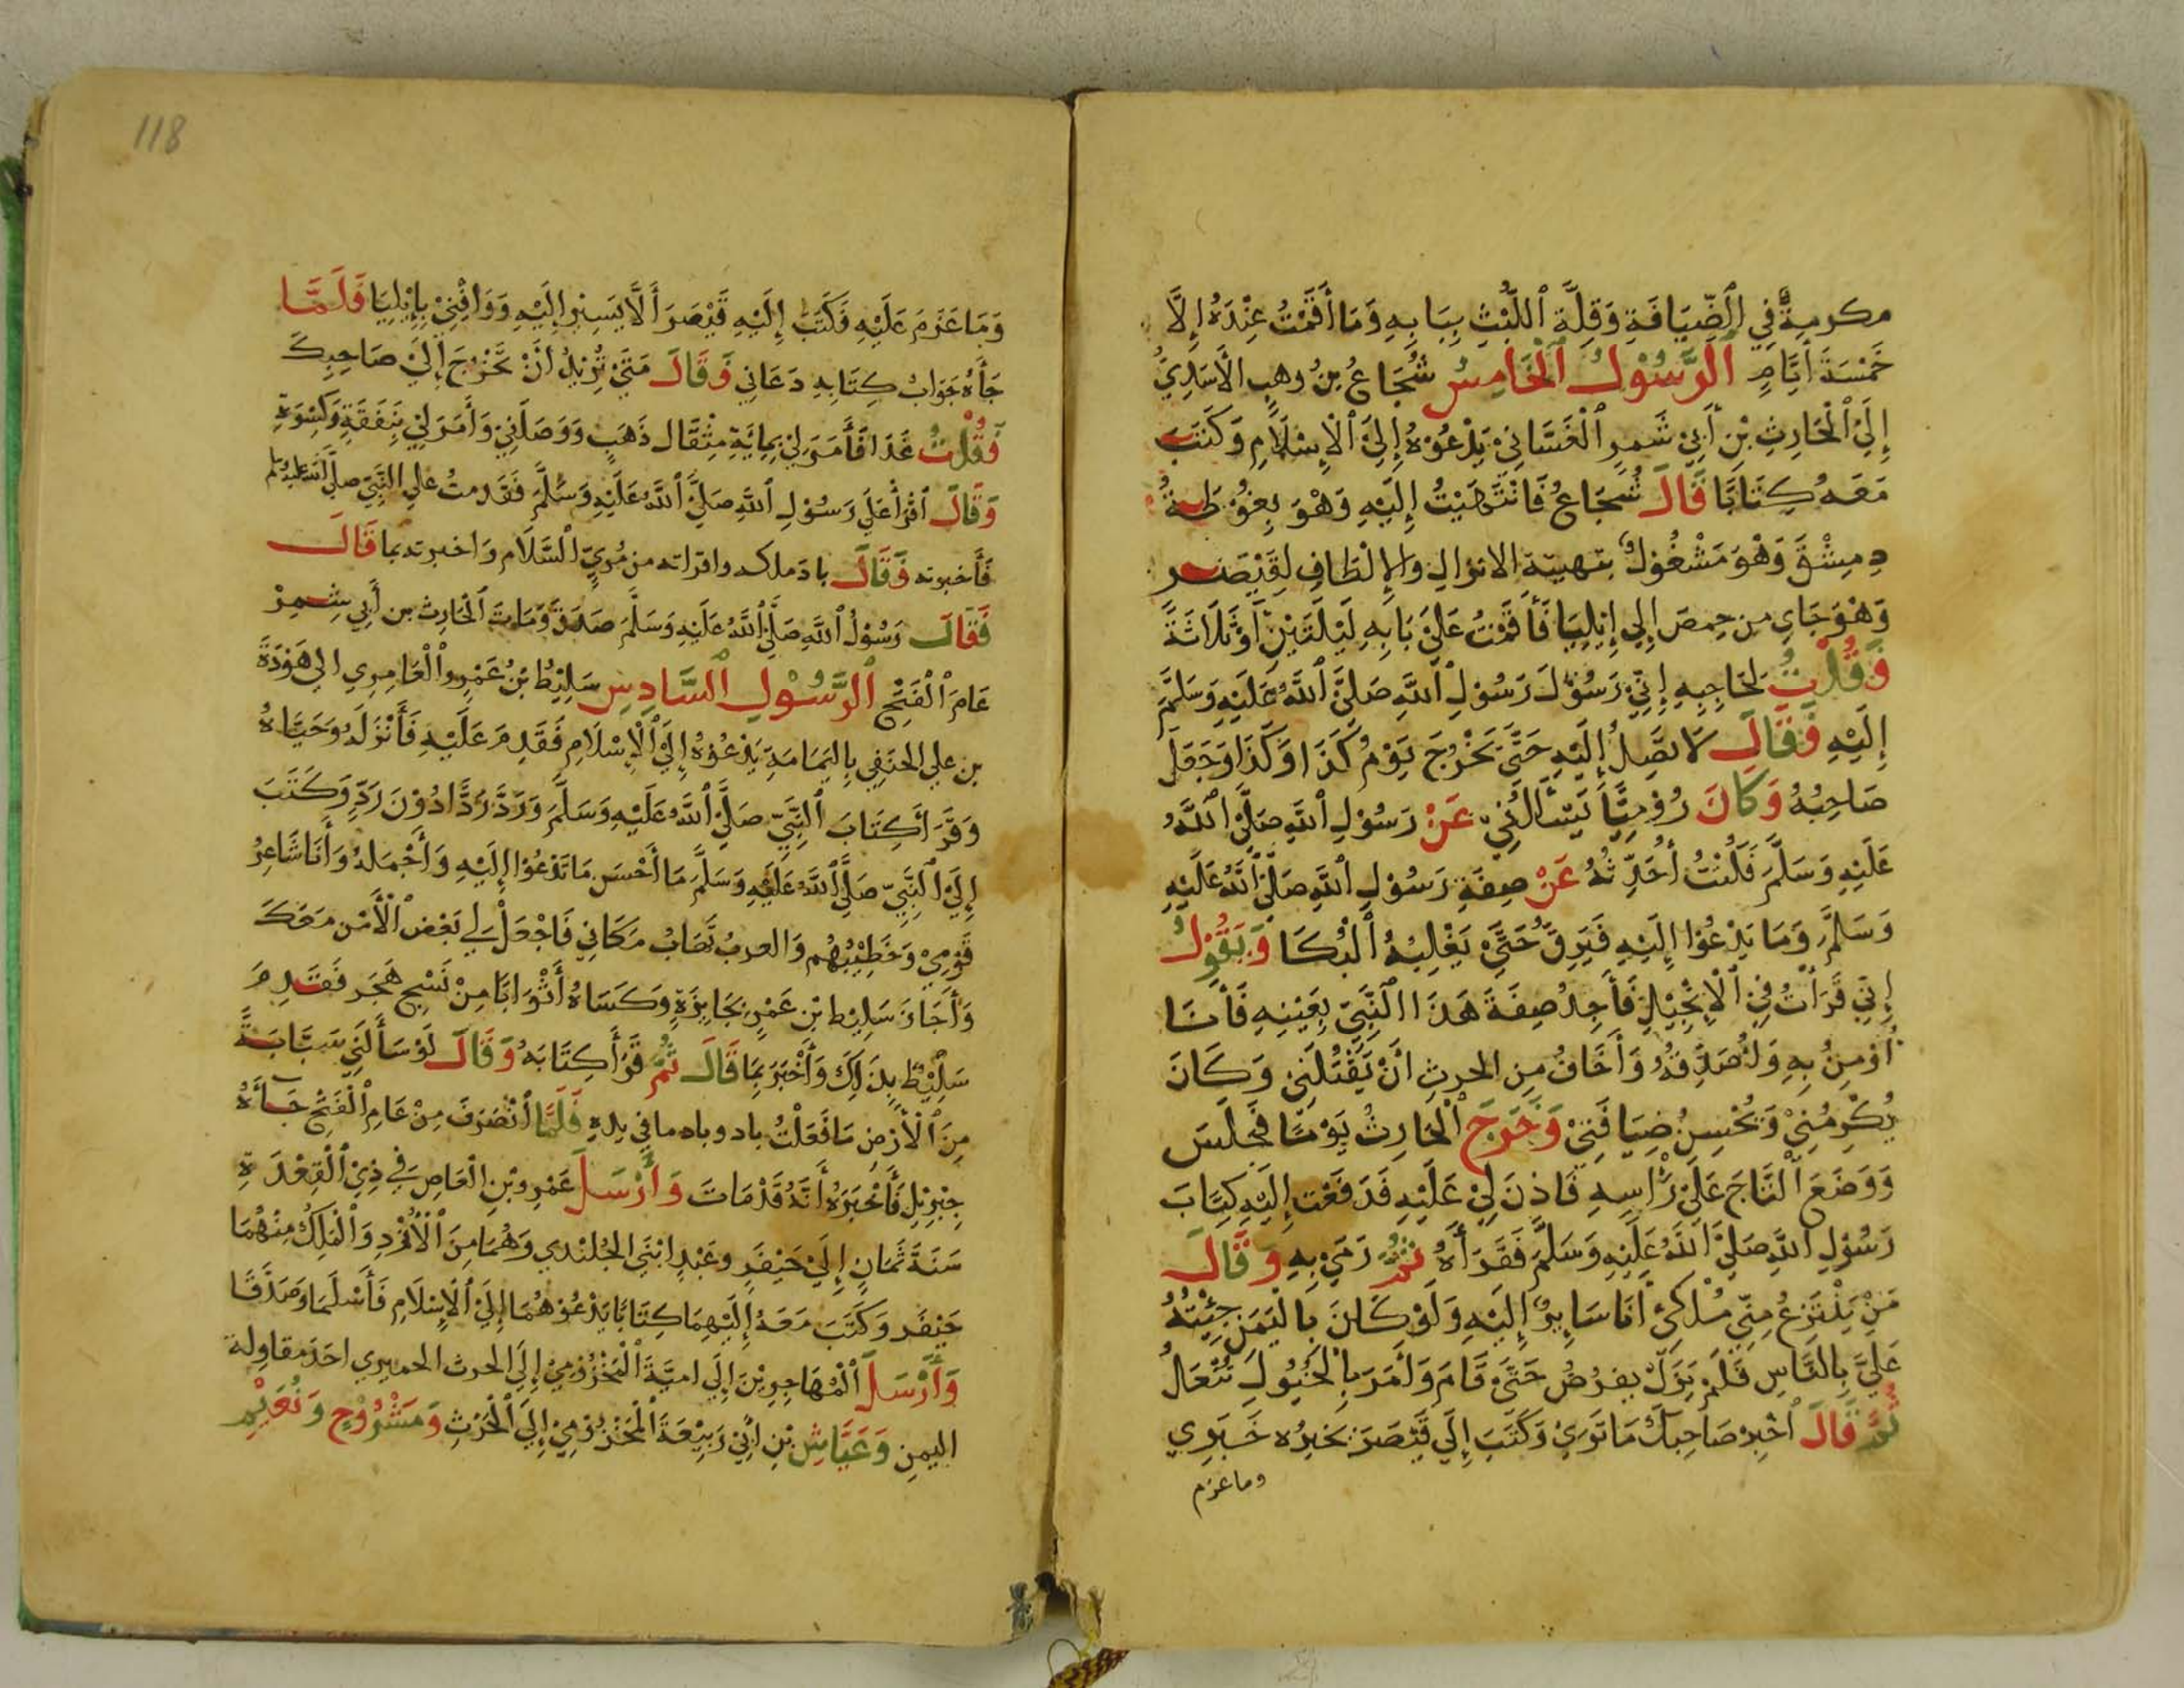 مكرمةٌ فِي الضِّيَافَةِ وَقِلَّةِ اللَّبْثِ بِبَابِهِ وَمَا أَقَمْتُ عِنْدَهُ إِلَّا
خَمْسَةَ أَيَّامٍ الرَّسُوْلُ الْخَامِسُ شُجَاعُ بنُ وهبٍ الْأَسَدِيُّ
إِلَى الْحَارِثِ بْنِ أَبِيْ شَمِرِ الْغَسَّانِيْ يَدْعُوْهُ إِلَيَ الْإِسْلَامِ وَكَتَبَ
مَعَهُ كِتَابًا قَالَ شُجَاعُ فَانْتَهَيْتُ إِلَيْهِ وَهْوَ بِغُوْطَةُ
دِمِشْقَ وَهْوَ مَشْغُوْلٌ بتهيئة الانزال والإِلْطَافِ لِقَيْصَر
وَهْوَ جَايٍ من حِمصَ إِلي إِيْلِيَا فَأَقَمْتُ عَلَيَ بَابِهِ لَيْلَتَيْنِ أَوْ ثَلَاثَةً
فَقُلْتُ لِحَاجِبِهِ إِنِّيْ رَسُوْلَ رَسُوْلِ اللَّهِ صَلَيَّ اللَّهُ عَلَيْهِ وَسَلَّمَ
إِلَيْهِ فَقَالَ لَا تَصِلُ إِلَيْهِ حَتَّيَ يَخْرُجَ يَوْمُ كَذَا وَكَذَا وَجَعَلَ
صَاحِبُهُ وَكَانَ رُوْمِيًّا يَسْأَلُنِيْ عَنْ رَسُوْلِ اللَّهِ صَلَيَّ اللَّهُ
عَلَيْهِ وَسَلَّمَ فَكُنْتُ أُحَدِّثُهُ عَنْ صِفَةِ رَسُوْلِ اللَّهِ صَلَيَّ اللَّهُ عَلَيْهِ
وَسَلَّمَ وَمَا يَدْعُوْا إِلَيْهِ فَيَرِقُّ حَتَّيْ يَغْلِبَهُ الْبُكَا وَيَقُوْلُ
إِنِّي قَرَأْتُ فِيْ الْإِنْجِيْلِ فَأَجِدُ صِفَةَ هَذَا النَّبِيّ بِعَيْنِهِ فَأَنَا
أُوْمِنُ بِهِ وَأُصَدِّقَهُ وَأَخَافُ مِن الحرثِ أَنْ يَقْتُلَنِيْ وَكَانَ
يُكْرِمُنِيْ وَيُحْسِنُ ضِيَافَتِيْ وَخَرَجَ الْحَارِثُ يَوْمًا فَجَلَسَ
وَوَضَعَ التَّاجَ عَلَيْ رَأْسِهِ فَاذِنَ لِيْ عَلَيْهِ فَدَفَعْت إِلَيْهِ كِتَابَ
رَسُوْلِ اللَّهِ صَلَيَّ اللَّهُ عَلَيْهِ وَسَلَّمَ فَقَرَأَهُ ثُمَّ رَمَيَ بِهِ وَقَالَ
مَنْ يَنْتَزِعُ مِنِّي مُلْكِيْ أَنَا سَايِرٌ إِلَيْهِ وَلَوْ كَانَ بِالْيَمَنِ جِئْتُهُ
عَلَيَّ بِالنَّاسِ فَلَمْ يَزَلْ يعرُضُ حَتَيَّ قَامَ وَأَمَرَ بِالْخُيُوْلِ تُنْعَالُ
ثُمَّ قَالَ أَخْبِرْ صَاحِبَكَ مَا تَرَيْ وَكَتَبَ إِلَي قَيْصَرَ يخبِرُه خَبَرِي
وما عزم
118
وَمَا عَزَمَ عَلَيْهِ فَكَتَبَ إِلَيْهِ قَيْصَرَ أَلَّا يَسِيْر إِلَيْهِ وَوَافِنِيْ بِإِيْلِيَا فَلَمَّا
جَأَهُ جَوَابُ كِتَابِهِ دَعَانِي وَقَالَ مَتَيْ تُرِيْدُ أَنْ تَخْرُجَ إِلَيْ صَاحِبِكَ
فَقُلْتُ غَدَا فَأَمَرَ لِيْ بِمِائَةِ مِثْقَال ذَهَبٍ وَوَصَلَنِيْ وَأَمَرَ لِيْ بِنَفَقَةٍ وَكِسْوَةٍ
وَقَالَ اقْرَأْ عَلَيَ رَسُوْلِ اللَّهِ صَلَيَّ اللَّهُ عَلَيْهِ وَسَلَّمَ فَقَدِمتُ علي النَّبِيّ صلَّي اللَّه عليه وسلم
فَأَخبرته فَقَالَ باد ملكه واقراته من مُريٍّ السَّلَام وَاخبرته بما قَالَ
فَقَالَ رَسُوْلُ اللَّهِ صَلَيَّ اللَّهُ عَلَيْهِ وَسَلَّمَ صَدَقَ وَمَاتَ الْحَارِث بن أَبِي شِمِرْ
عَامَ الْفَتْحِ الرَّسُوْلِ السَّادِسِ سَلِيْطُ بْنُ عَمْرِو الْعَامِرِي الي هَوْذَةَ
بن علي الحنَفِي بِاليَمَامَةِ يَدْعُوْهُ إِلَيَ الْإِسْلَامِ فَقَدِمَ عَلَيْهِ فَأَنْزَلَهُ وَحَيَّاهُ
وَقَرَأَ كِتَابَ النَّبِيّ صَلَيَّ اللَّهُ عَلَيْهِ وَسَلَّمَ وَرَدَّ رَدًّا دُوْنَ رَدٍّ وَكَتَبَ
إِلَيَ النَّبِيّ صَلَيَّ اللَّهُ عَلَيْهِ وَسَلَّمَ مَا أَحْسَن مَا تَدْعُوْا إِلَيْهِ وَأَجْمَلهُ وَأَنَا شَاعِرُ
قَوْمِيْ وَخَطِيْبُهُم وَالعربُ تَهَابُ مَكَانِي فَاجْعَلْ لِي بَعْضَ الْأَمْن مَعَكَ
وَأَجَازَ سَلِيْط بْنِ عَمْرٍ بِجَايِزَةٍ وَكَسَاهُ أَثْوَابًا مِنْ نَسْجِ هَجَر فَقَدِمَ
سَلِيْطٌ بِذَلِكَ وَأَخْبَرَ بِمَا قَالَ ثُمَّ قَرَأَ كِتَابَهُ وَقَالَ لَوْ سَأَلَنِي سَيَابَةً
مِنَ الْأَرْضِ مَا فَعَلْتُ باد وباد ما فِي يدِهِ فَلَمَّا انْصَرَفَ مِنْ عَامِ الْفَتْحِ جَأَهُ
جِبْرِيْلِ فَأَخْبَرَهُ أَنَّهُ قَدْ مَاتَ وَأَرْسَلَ عَمْرِو بْنِ الْعَاصِ فِي ذِيْ الْقِعْدَةِ
سَنَةَ ثَمَانٍ إِلَيْ جَيْفَرٍ وعَبْدٍ ابْنَيِ الجُلنْدي وَهُمَا مِنَ الْأَزْدِ وَالْمَلِكُ مِنْهُمَا
جَيْفَر وَكَتَبَ مَعَهُ إِلَيْهِمَا كِتَابًا يَدْعُوْهُمَا إِلَيَ الْإِسْلَامِ فَأَسْلَمَا وَصَدَّقَا
وَأَرْسَلَ الْمُهَاجِرِيْنَ إِلَي اميَّةَ الْمَخْزُوْمِيْ إِلَيَ الحرث الحميري احَدَ مقاولة
اليمنِ وَعَيَّاشِ بْنِ أَبِيْ رَبِيْعَةَ الْمَخْزُوْمِيْ إِلَيَ الْحَرْثِ وَمَشْرُوْحٍ وَنُعَيْمٍ